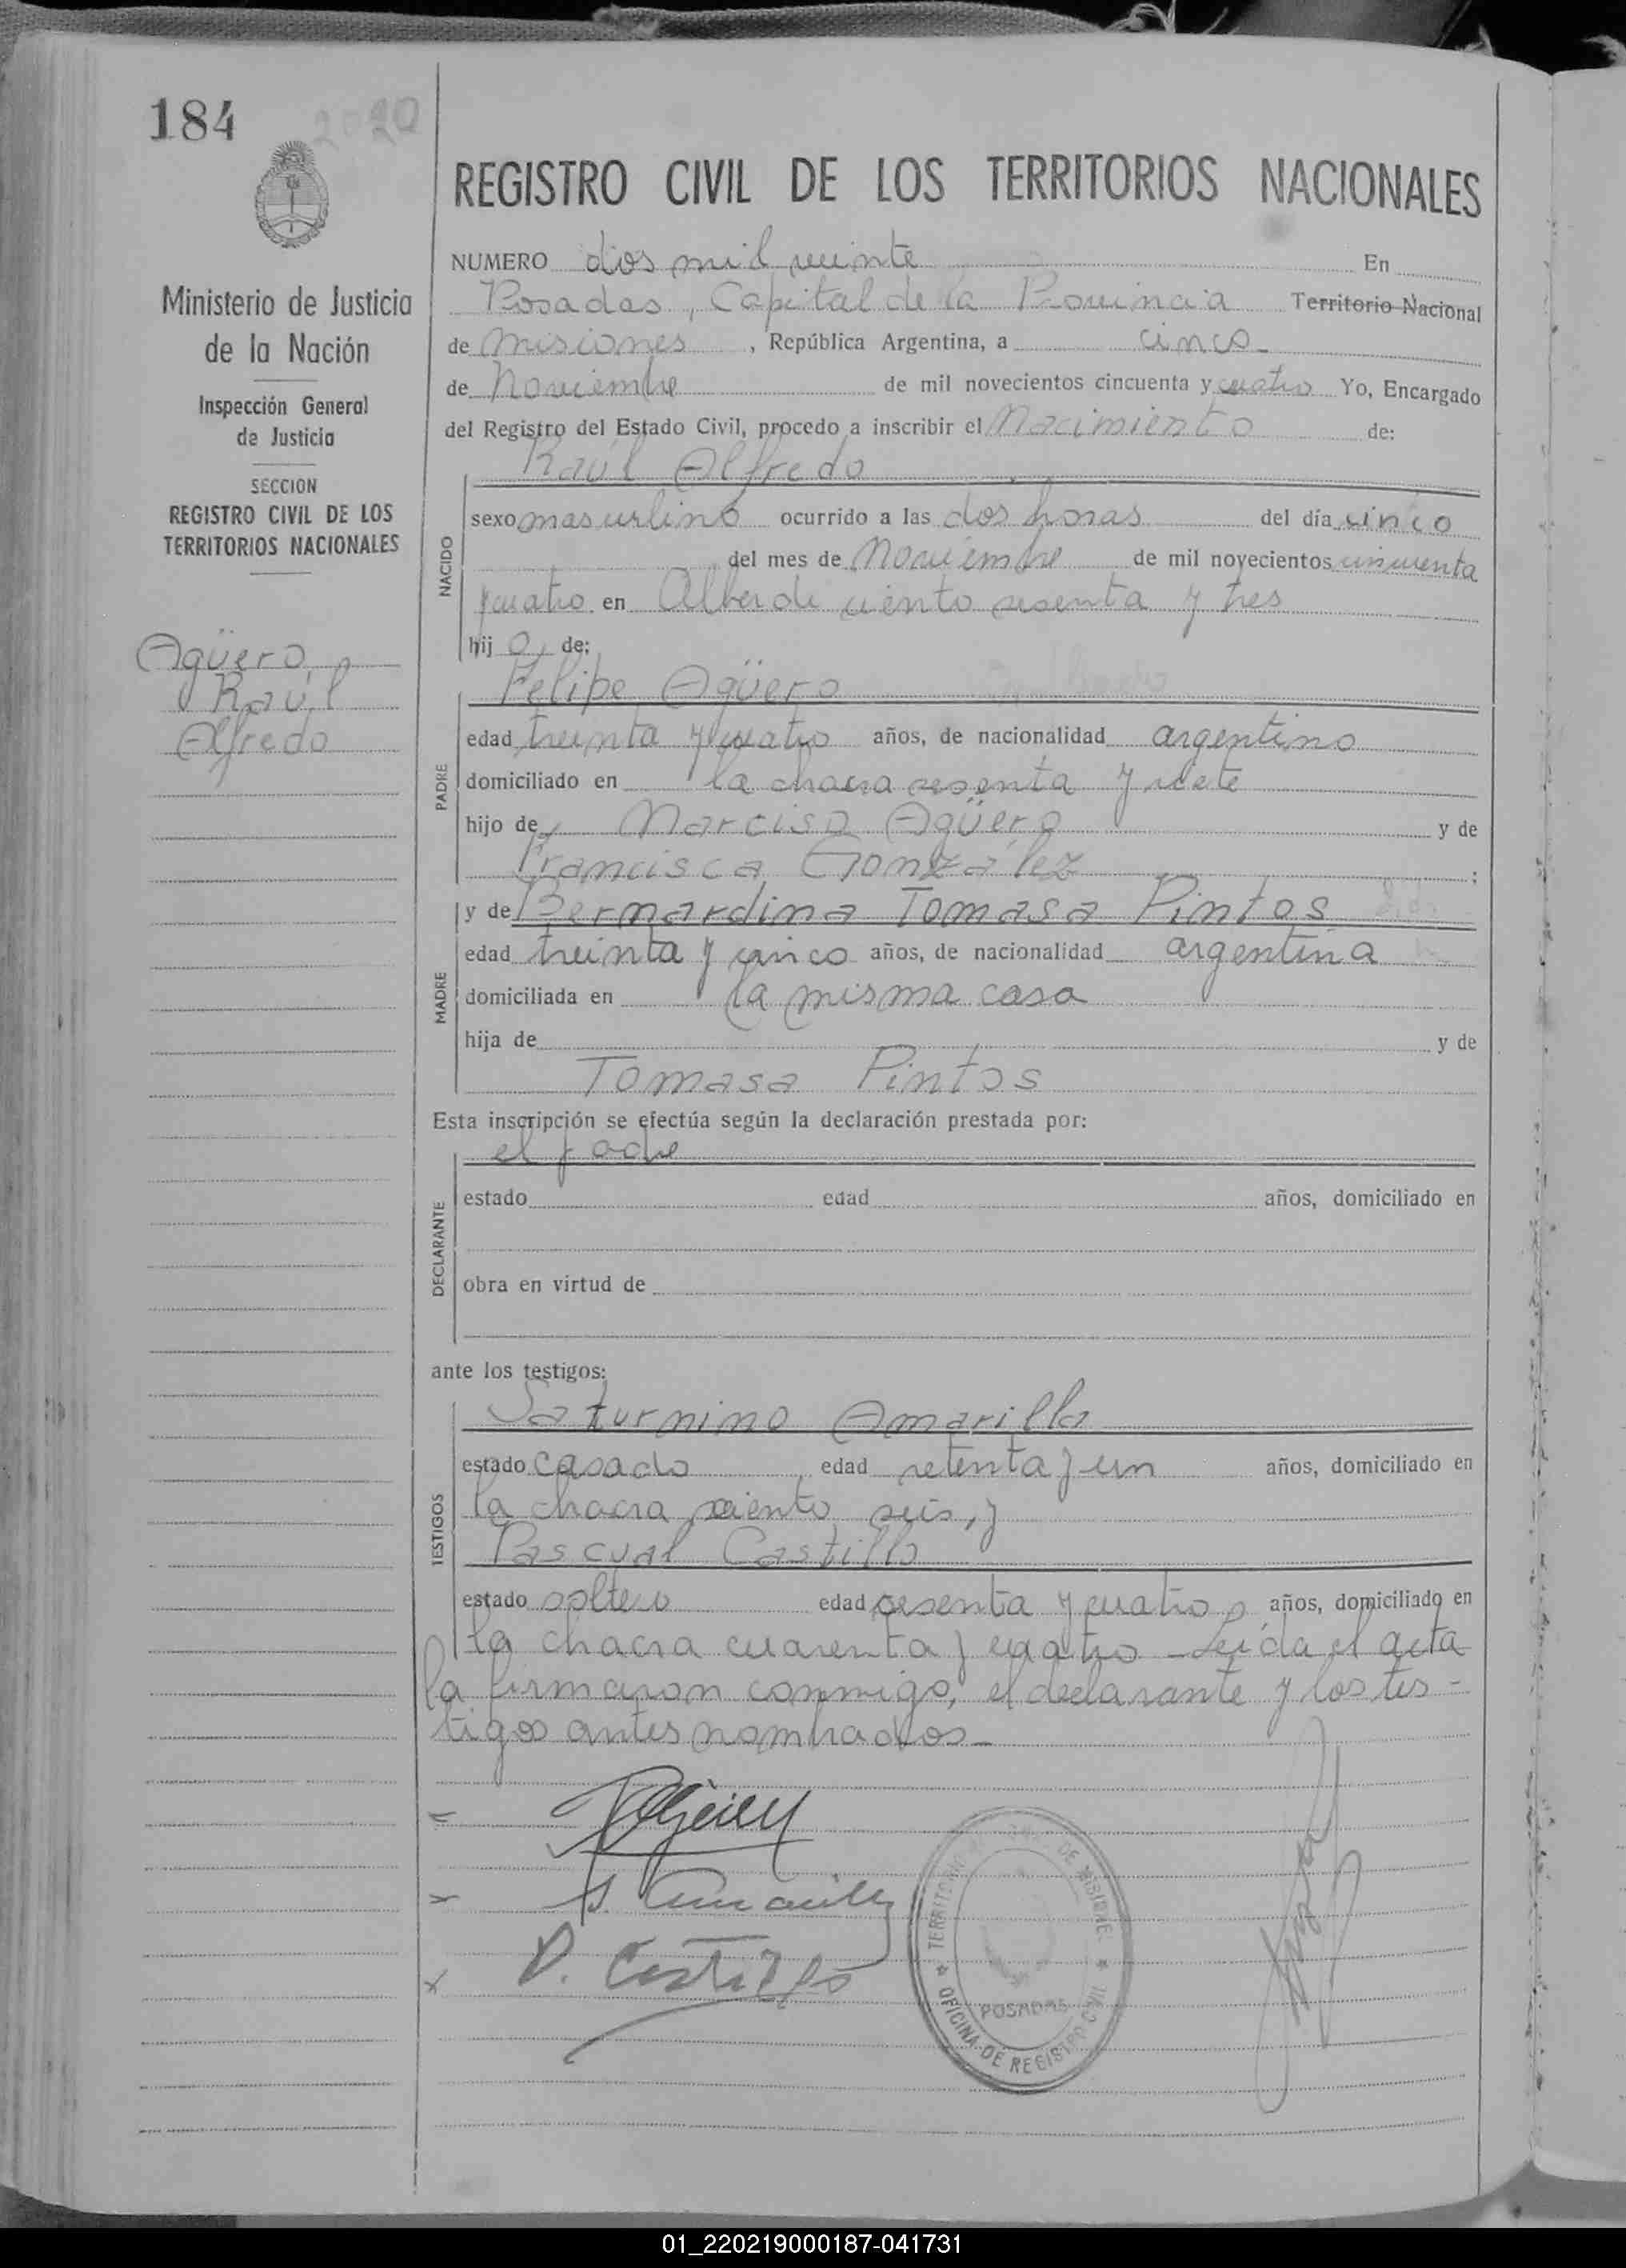 184
2020
REGISTRO CIVIL DE LOS TERRITORIOS NACIONALES
Ministerio de Justicia
de la Nación
Inspección General
de Justicia
SECCION
REGISTRO CIVIL DE LOS
TERRITORIOS NACIONALES
Agüero,
Raúl
Alfredo
NUMERO dos mil veinte En
Posadas, Capital de la Provincia Territorio Nacional
de Misiones, República Argentina, a cinco
de Noviembre de mil novecientos cincuenta y cuatro Yo, Encargado
del Registro del Estado Civil, procedo a inscribir el Nacimiento de:
Raúl Alfredo
NACIDO
sexo masculino ocurrido a las dos horas del día cinco
del mes de Noviembre de mil novecientos cincuenta
y cuatro en Alberdi ciento sesenta y tres
hijo, de:
Felipe Agüero
PADRE
edad treinta y cuatro años, de nacionalidad argentino
domiciliado en la chacra sesenta y siete
hijo de Narciso Agüero y de
Francisca González ;
y de Bernardina Tomasa Pintos
MADRE
edad treinta y cinco años, de nacionalidad argentina
domiciliada en la misma casa
hija de y de
Tomasa Pintos
Esta inscripción se efectúa según la declaración prestada por:
el padre
DECLARANTE
estado edad años, domiciliado en
obra en virtud de
ante los testigos:
Saturnino Amarilla
TESTIGOS
estado casado, edad setenta y un años, domiciliado en
la chacra ciento seis, y
Pascual Castillo
estado soltero edad sesenta y cuatro años, domiciliado en
la chacra cuarenta y cuatro - Leída el acta
la firmaron conmigo, el declarante y los tes-
tigos antes nombrados-
S. Amarilla
P. Castillo
TERRITORIO DE MISIONES
POSADAS
OFICINA DE REGISTRO CIVIL
01_220219000187-041731